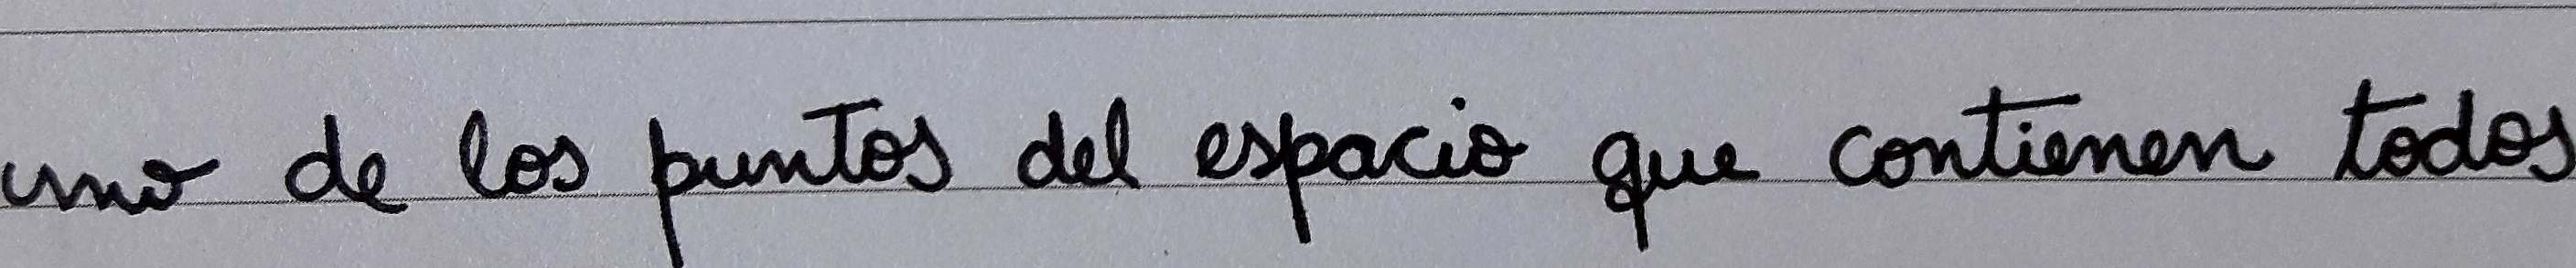 uno de los puntos del espacio que contienen todos